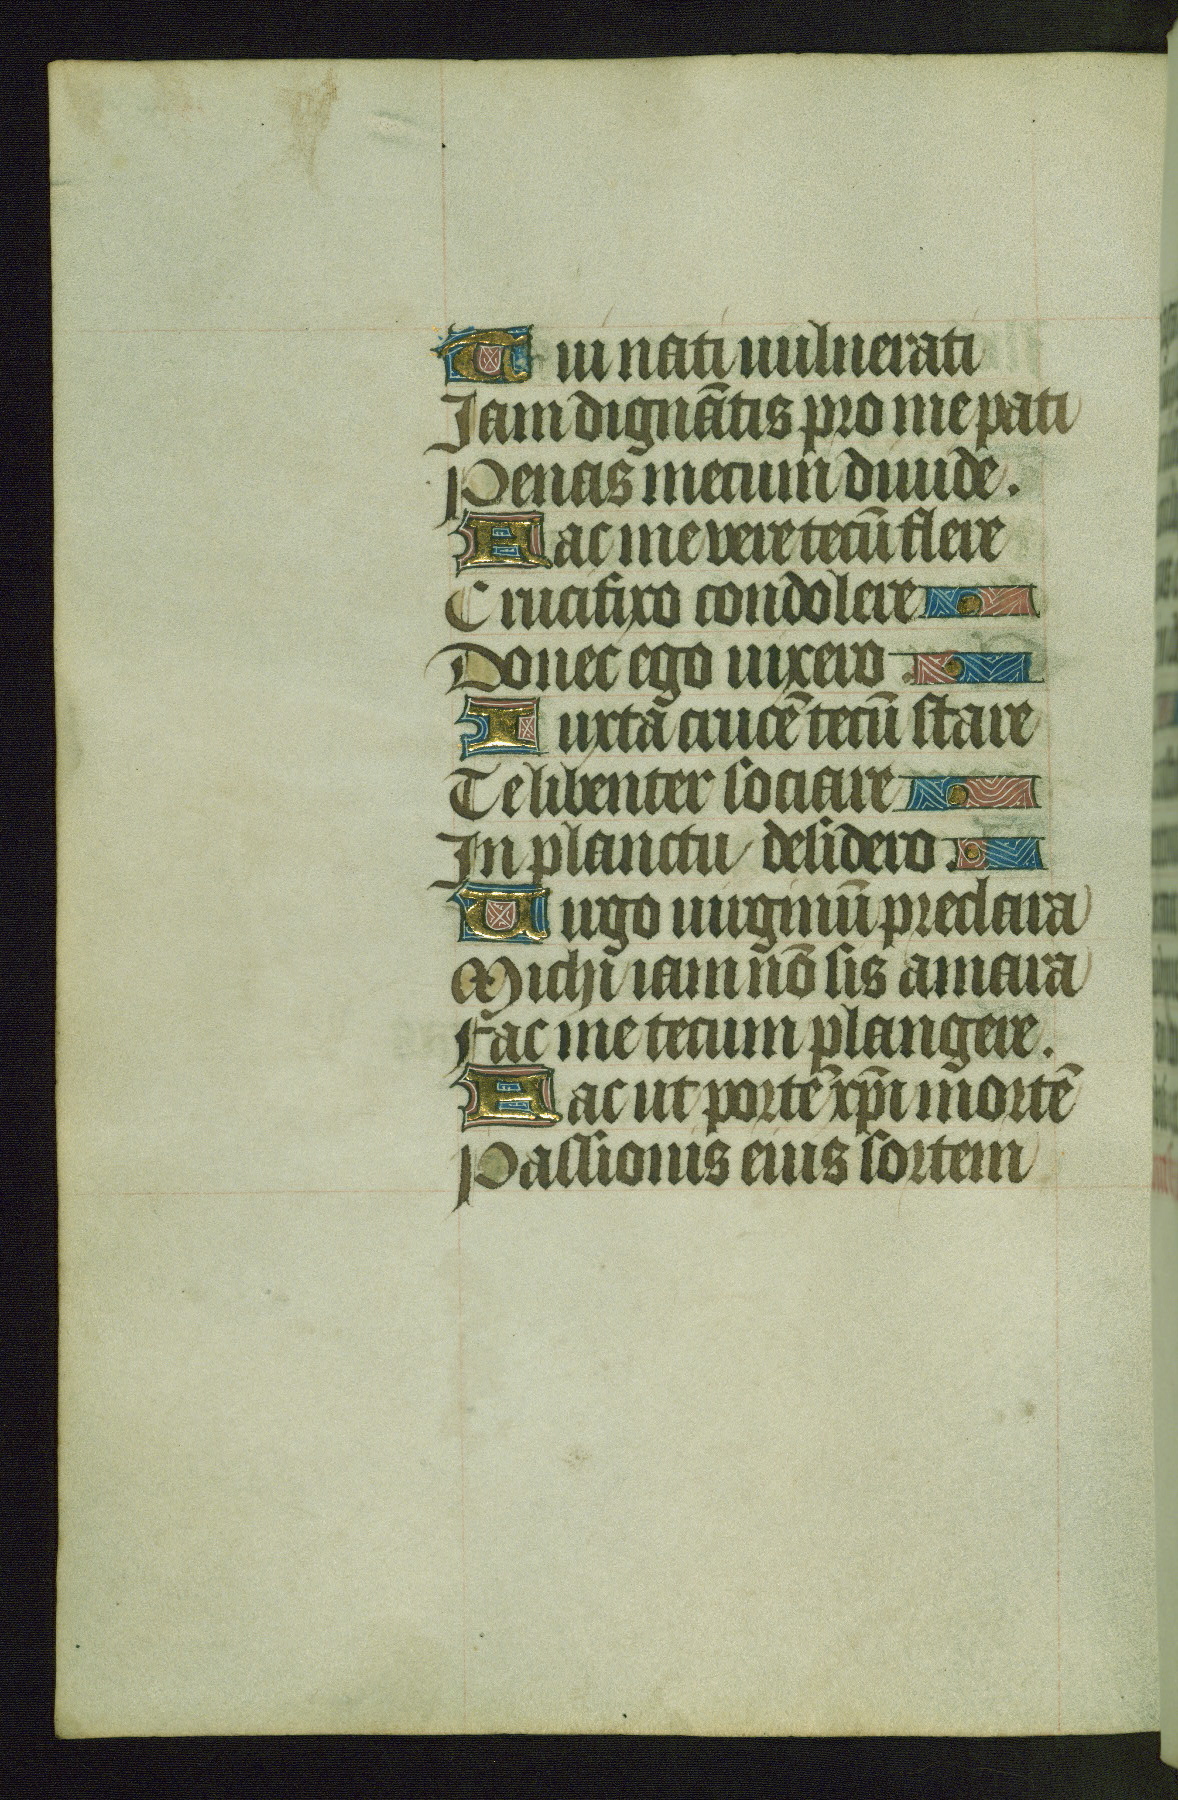 Tui nati uulnerati
Jam dignātis pro me pati
Penas mecum diuide.
Fac me vere tecū flere
Crucifixo condolere
Donec ego uixero.
Iuxta crucē tecū stare
Te libenter sociare
In planctu desidero.
Uirgo uirginū preclara
Michi iam nō sis amara
Fac me tecum plangere.
Fac ut portē xp̄i mortē
Passionis eius sortem